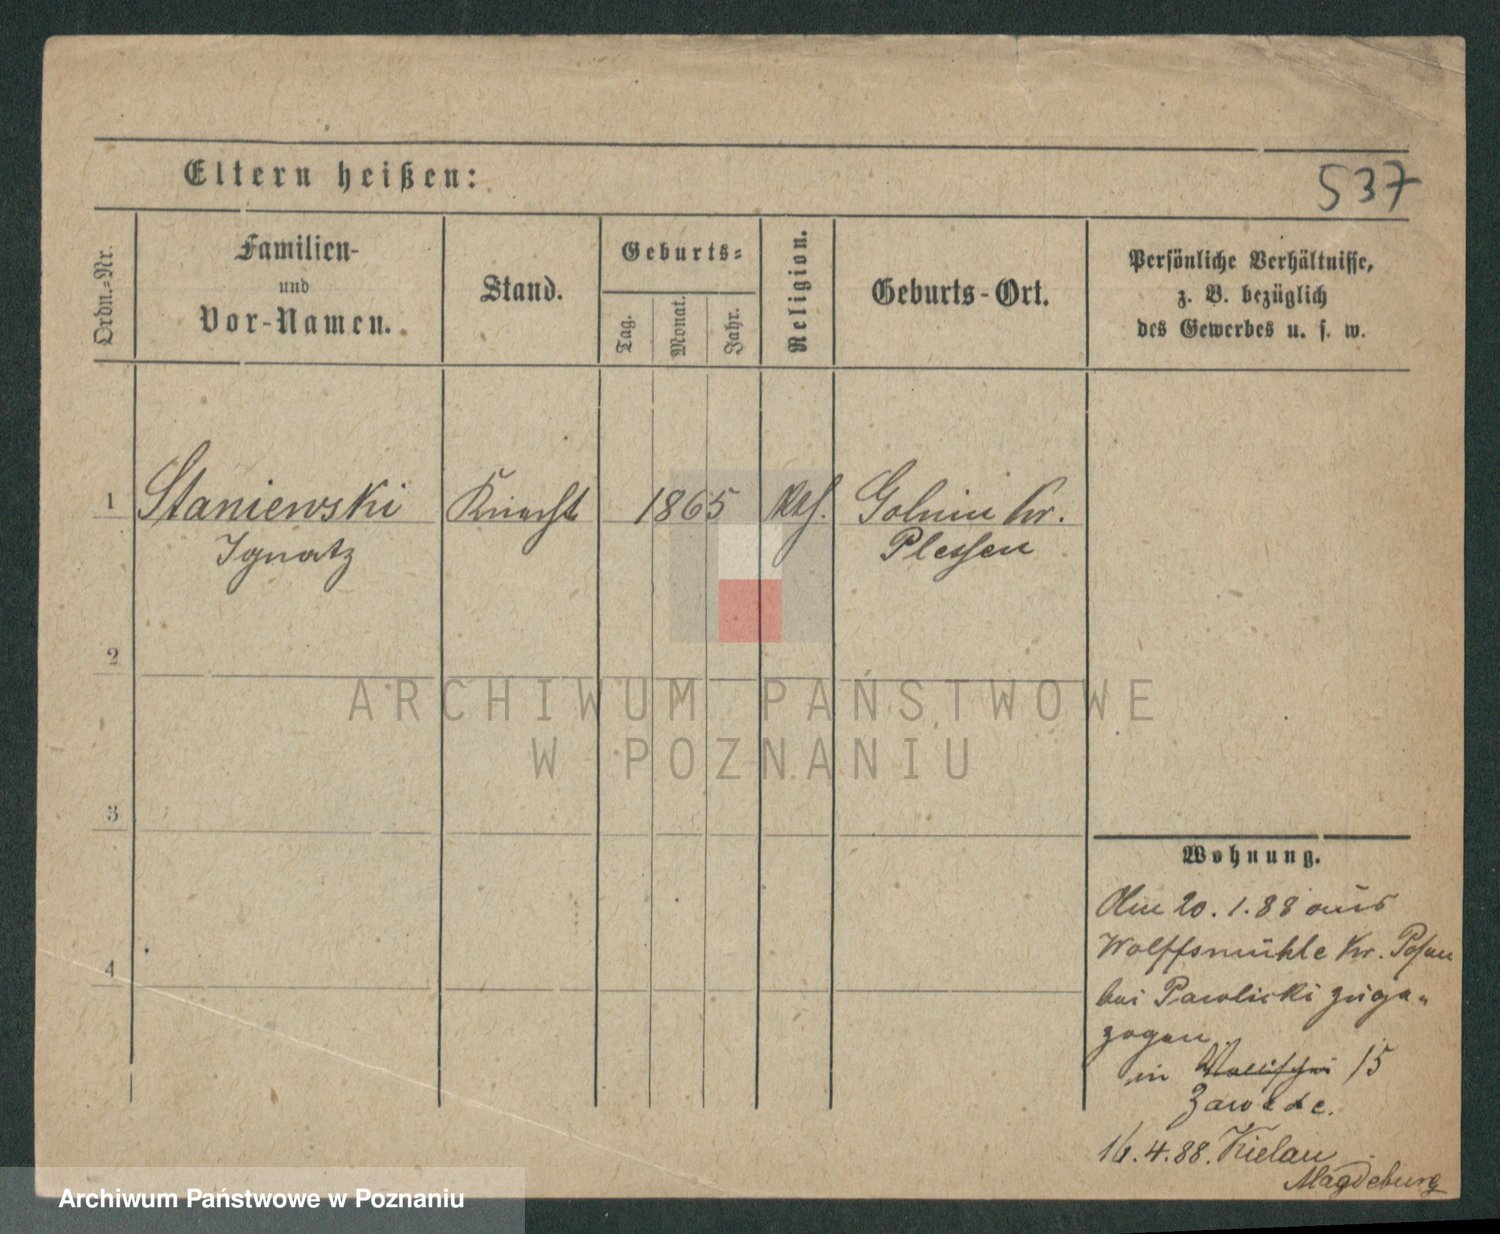 Eltern heißen:
537
Ordn.=Nr.
Familien-
und
Vor-Namen.
Stand.
Geburts=
Tag.
Monat.
Jahr.
Religion.
Geburts-Ort.
Persönliche Verhältnisse,
z. B. bezüglich
des Gewerbes u. s. w.
1
Staniewski
Ignatz
Knecht
1865
kth.
Golnin Kr.
Pleschen
2
3
4
Wohnung.
Am 20.1.88 aus
Wolffsmühle Kr. Posen
bei Pawlicki zuge=
zogen
in Wallischei 15
Zawade.
16.4.88. Kielau
Magdeburg
ARCHIWUM PAŃSTWOWE
W POZNANIU
Archiwum Państwowe w Poznaniu